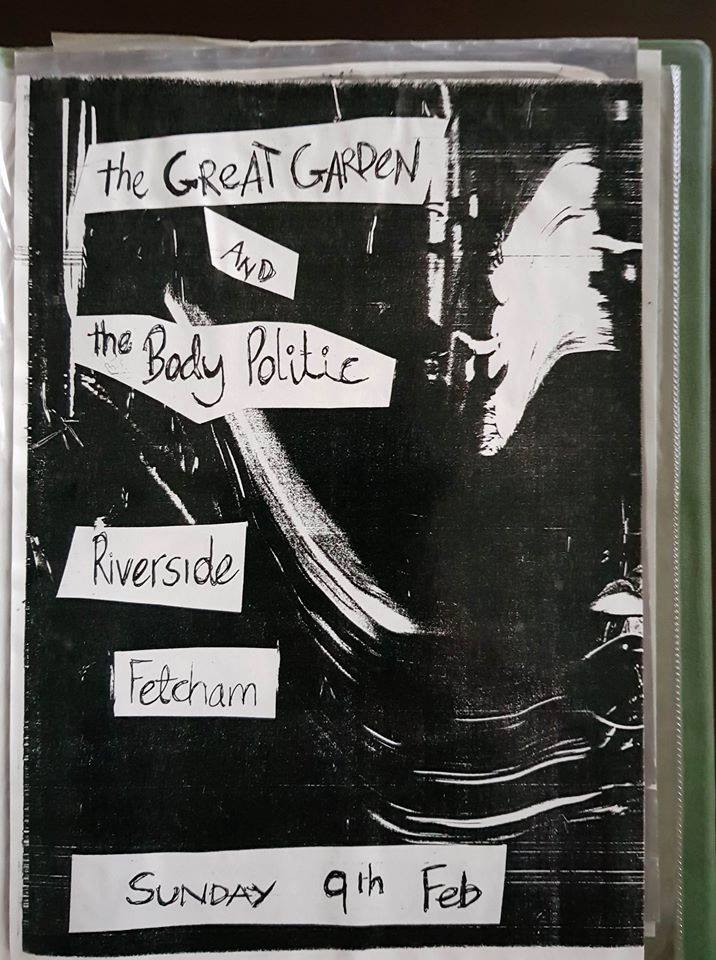 the GREAT GARDEN
AND
the Body Politic
Riverside
Fetcham
SUNDAY 9th Feb